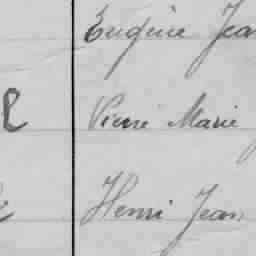 Eugène Jea
Pierre Marie
Henri Jean